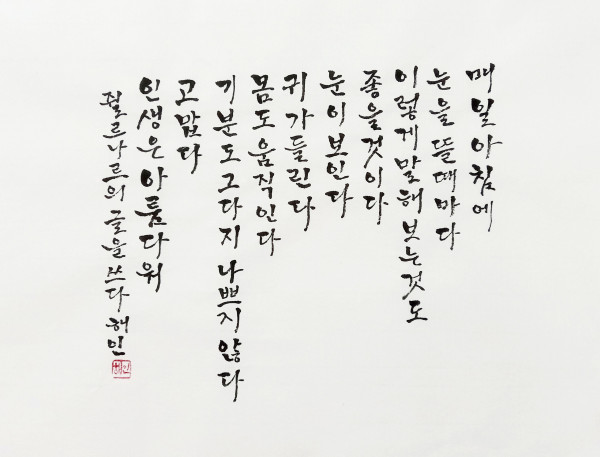 매일 아침에
눈을 뜰 때마다
이렇게 말해 보는 것도
좋을 것이다
눈이 보인다
귀가 들린다
몸도 움직인다
기분도 그다지 나쁘지 않다
고맙다
인생은 아름다워
쥘 르나르의 글을 쓰다 해인
해인